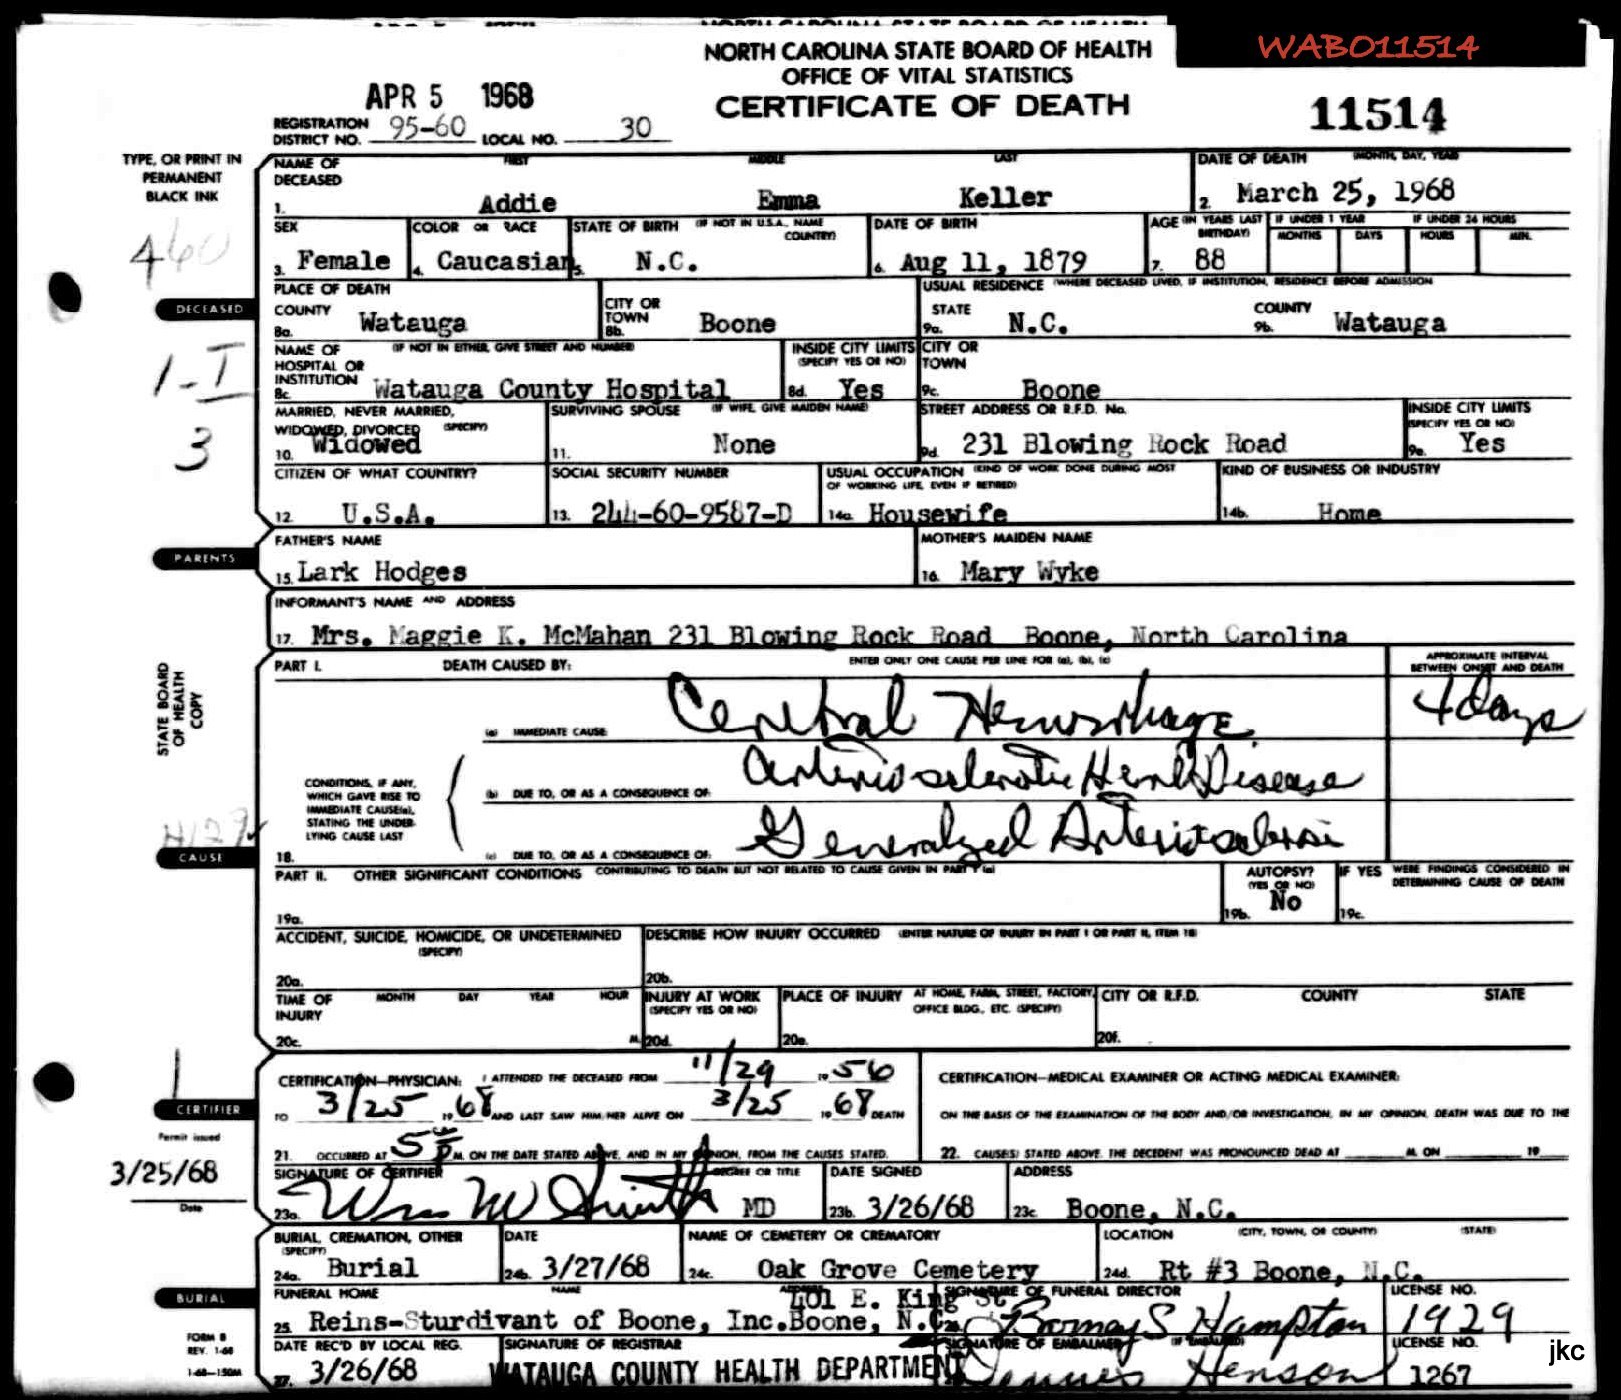 WABO11514
NORTH CAROLINA STATE BOARD OF HEALTH
OFFICE OF VITAL STATISTICS
CERTIFICATE OF DEATH
11514
APR 5 1968
REGISTRATION DISTRICT NO. 95-60 LOCAL NO. 30
TYPE, OR PRINT IN
PERMANENT
BLACK INK
460
NAME OF DECEASED FIRST MIDDLE LAST DATE OF DEATH (MONTH, DAY, YEAR)
1. Addie Emma Keller 2. March 25, 1968
SEX COLOR OR RACE STATE OF BIRTH (IF NOT IN U.S.A., NAME COUNTRY) DATE OF BIRTH AGE (IN YEARS LAST BIRTHDAY) IF UNDER 1 YEAR IF UNDER 24 HOURS
MONTHS DAYS HOURS MIN.
3. Female 4. Caucasian 5. N.C. 6. Aug 11, 1879 7. 88
DECEASED
PLACE OF DEATH USUAL RESIDENCE (WHERE DECEASED LIVED, IF INSTITUTION, RESIDENCE BEFORE ADMISSION
COUNTY CITY OR TOWN STATE COUNTY
8a. Watauga 8b. Boone 9a. N.C. 9b. Watauga
1-I
3
NAME OF HOSPITAL OR INSTITUTION (IF NOT IN EITHER, GIVE STREET AND NUMBER) INSIDE CITY LIMITS (SPECIFY YES OR NO) CITY OR TOWN
8c. Watauga County Hospital 8d. Yes 9c. Boone
MARRIED, NEVER MARRIED, WIDOWED, DIVORCED (SPECIFY) SURVIVING SPOUSE (IF WIFE, GIVE MAIDEN NAME) STREET ADDRESS OR R.F.D. No. INSIDE CITY LIMITS (SPECIFY YES OR NO)
10. Widowed 11. None 9d. 231 Blowing Rock Road 9e. Yes
CITIZEN OF WHAT COUNTRY? SOCIAL SECURITY NUMBER USUAL OCCUPATION (KIND OF WORK DONE DURING MOST OF WORKING LIFE, EVEN IF RETIRED) KIND OF BUSINESS OR INDUSTRY
12. U.S.A. 13. 244-60-9587-D 14a. Housewife 14b. Home
PARENTS
FATHER'S NAME MOTHER'S MAIDEN NAME
15. Lark Hodges 16. Mary Wyke
INFORMANT'S NAME AND ADDRESS
17. Mrs. Maggie K. McMahan 231 Blowing Rock Road Boone, North Carolina
STATE BOARD
OF HEALTH
COPY
PART I. DEATH CAUSED BY: ENTER ONLY ONE CAUSE PER LINE FOR (a), (b), (c) APPROXIMATE INTERVAL BETWEEN ONSET AND DEATH
(a) IMMEDIATE CAUSE: Cerebral Hemorrhage 4 days
CONDITIONS, IF ANY, WHICH GAVE RISE TO IMMEDIATE CAUSE(a), STATING THE UNDERLYING CAUSE LAST
(b) DUE TO, OR AS A CONSEQUENCE OF: Arteriosclerotic Heart Disease
18. (c) DUE TO, OR AS A CONSEQUENCE OF: Generalized Arteriosclerosis
CAUSE
PART II. OTHER SIGNIFICANT CONDITIONS CONTRIBUTING TO DEATH BUT NOT RELATED TO CAUSE GIVEN IN PART I (a) AUTOPSY? (YES OR NO) IF YES WERE FINDINGS CONSIDERED IN DETERMINING CAUSE OF DEATH
19a. 19b. No 19c.
ACCIDENT, SUICIDE, HOMICIDE, OR UNDETERMINED (SPECIFY) DESCRIBE HOW INJURY OCCURRED (ENTER NATURE OF INJURY IN PART I OR PART II, ITEM 18)
20a. 20b.
TIME OF INJURY MONTH DAY YEAR HOUR INJURY AT WORK (SPECIFY YES OR NO) PLACE OF INJURY AT HOME, FARM, STREET, FACTORY, OFFICE BLDG., ETC. (SPECIFY) CITY OR R.F.D. COUNTY STATE
20c. M. 20d. 20e. 20f.
1
CERTIFIER
CERTIFICATION—PHYSICIAN: I ATTENDED THE DECEASED FROM 11/29 19 56
TO 3/25 19 68 AND LAST SAW HIM/HER ALIVE ON 3/25 19 68 DEATH
21. OCCURRED AT 5 P M. ON THE DATE STATED ABOVE, AND IN MY OPINION, FROM THE CAUSES STATED.
CERTIFICATION—MEDICAL EXAMINER OR ACTING MEDICAL EXAMINER:
ON THE BASIS OF THE EXAMINATION OF THE BODY AND/OR INVESTIGATION, IN MY OPINION, DEATH WAS DUE TO THE
22. CAUSE(S) STATED ABOVE. THE DECEDENT WAS PRONOUNCED DEAD AT M. ON 19
Permit issued
3/25/68
Date
SIGNATURE OF CERTIFIER DEGREE OR TITLE DATE SIGNED ADDRESS
23a. Wm M Smith MD 23b. 3/26/68 23c. Boone, N.C.
BURIAL, CREMATION, OTHER (SPECIFY) DATE NAME OF CEMETERY OR CREMATORY LOCATION (CITY, TOWN, OR COUNTY) (STATE)
24a. Burial 24b. 3/27/68 24c. Oak Grove Cemetery 24d. Rt #3 Boone, N.C.
BURIAL
FUNERAL HOME NAME ADDRESS SIGNATURE OF FUNERAL DIRECTOR LICENSE NO.
401 E. King St
25. Reins-Sturdivant of Boone, Inc. Boone, N.C. 26. Hampton 1929
FORM 8
REV. 1-68
1-68—150M
DATE REC'D BY LOCAL REG. SIGNATURE OF REGISTRAR SIGNATURE OF EMBALMER (IF EMBALMED) LICENSE NO.
27. 3/26/68 WATAUGA COUNTY HEALTH DEPARTMENT Dennis Henson 1267
jkc